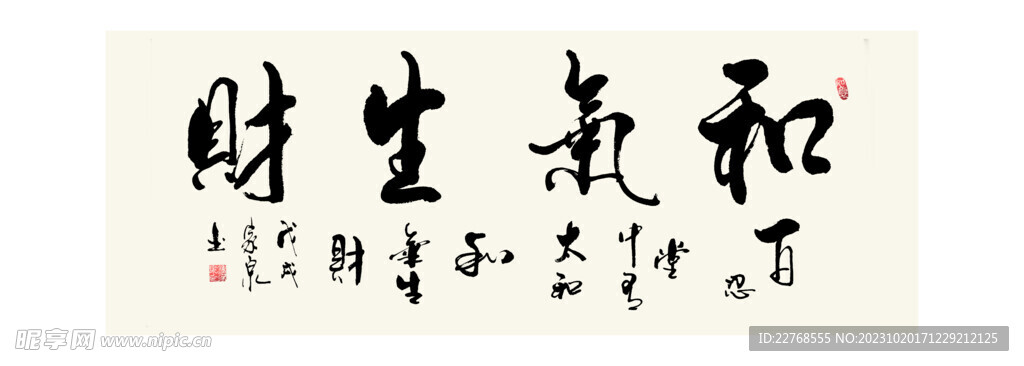 和氣生財
百忍堂中有太和
和氣生財
戊戌
泉书
昵享网 www.nipic.cn
ID:22768555 NO:20231020171229212125